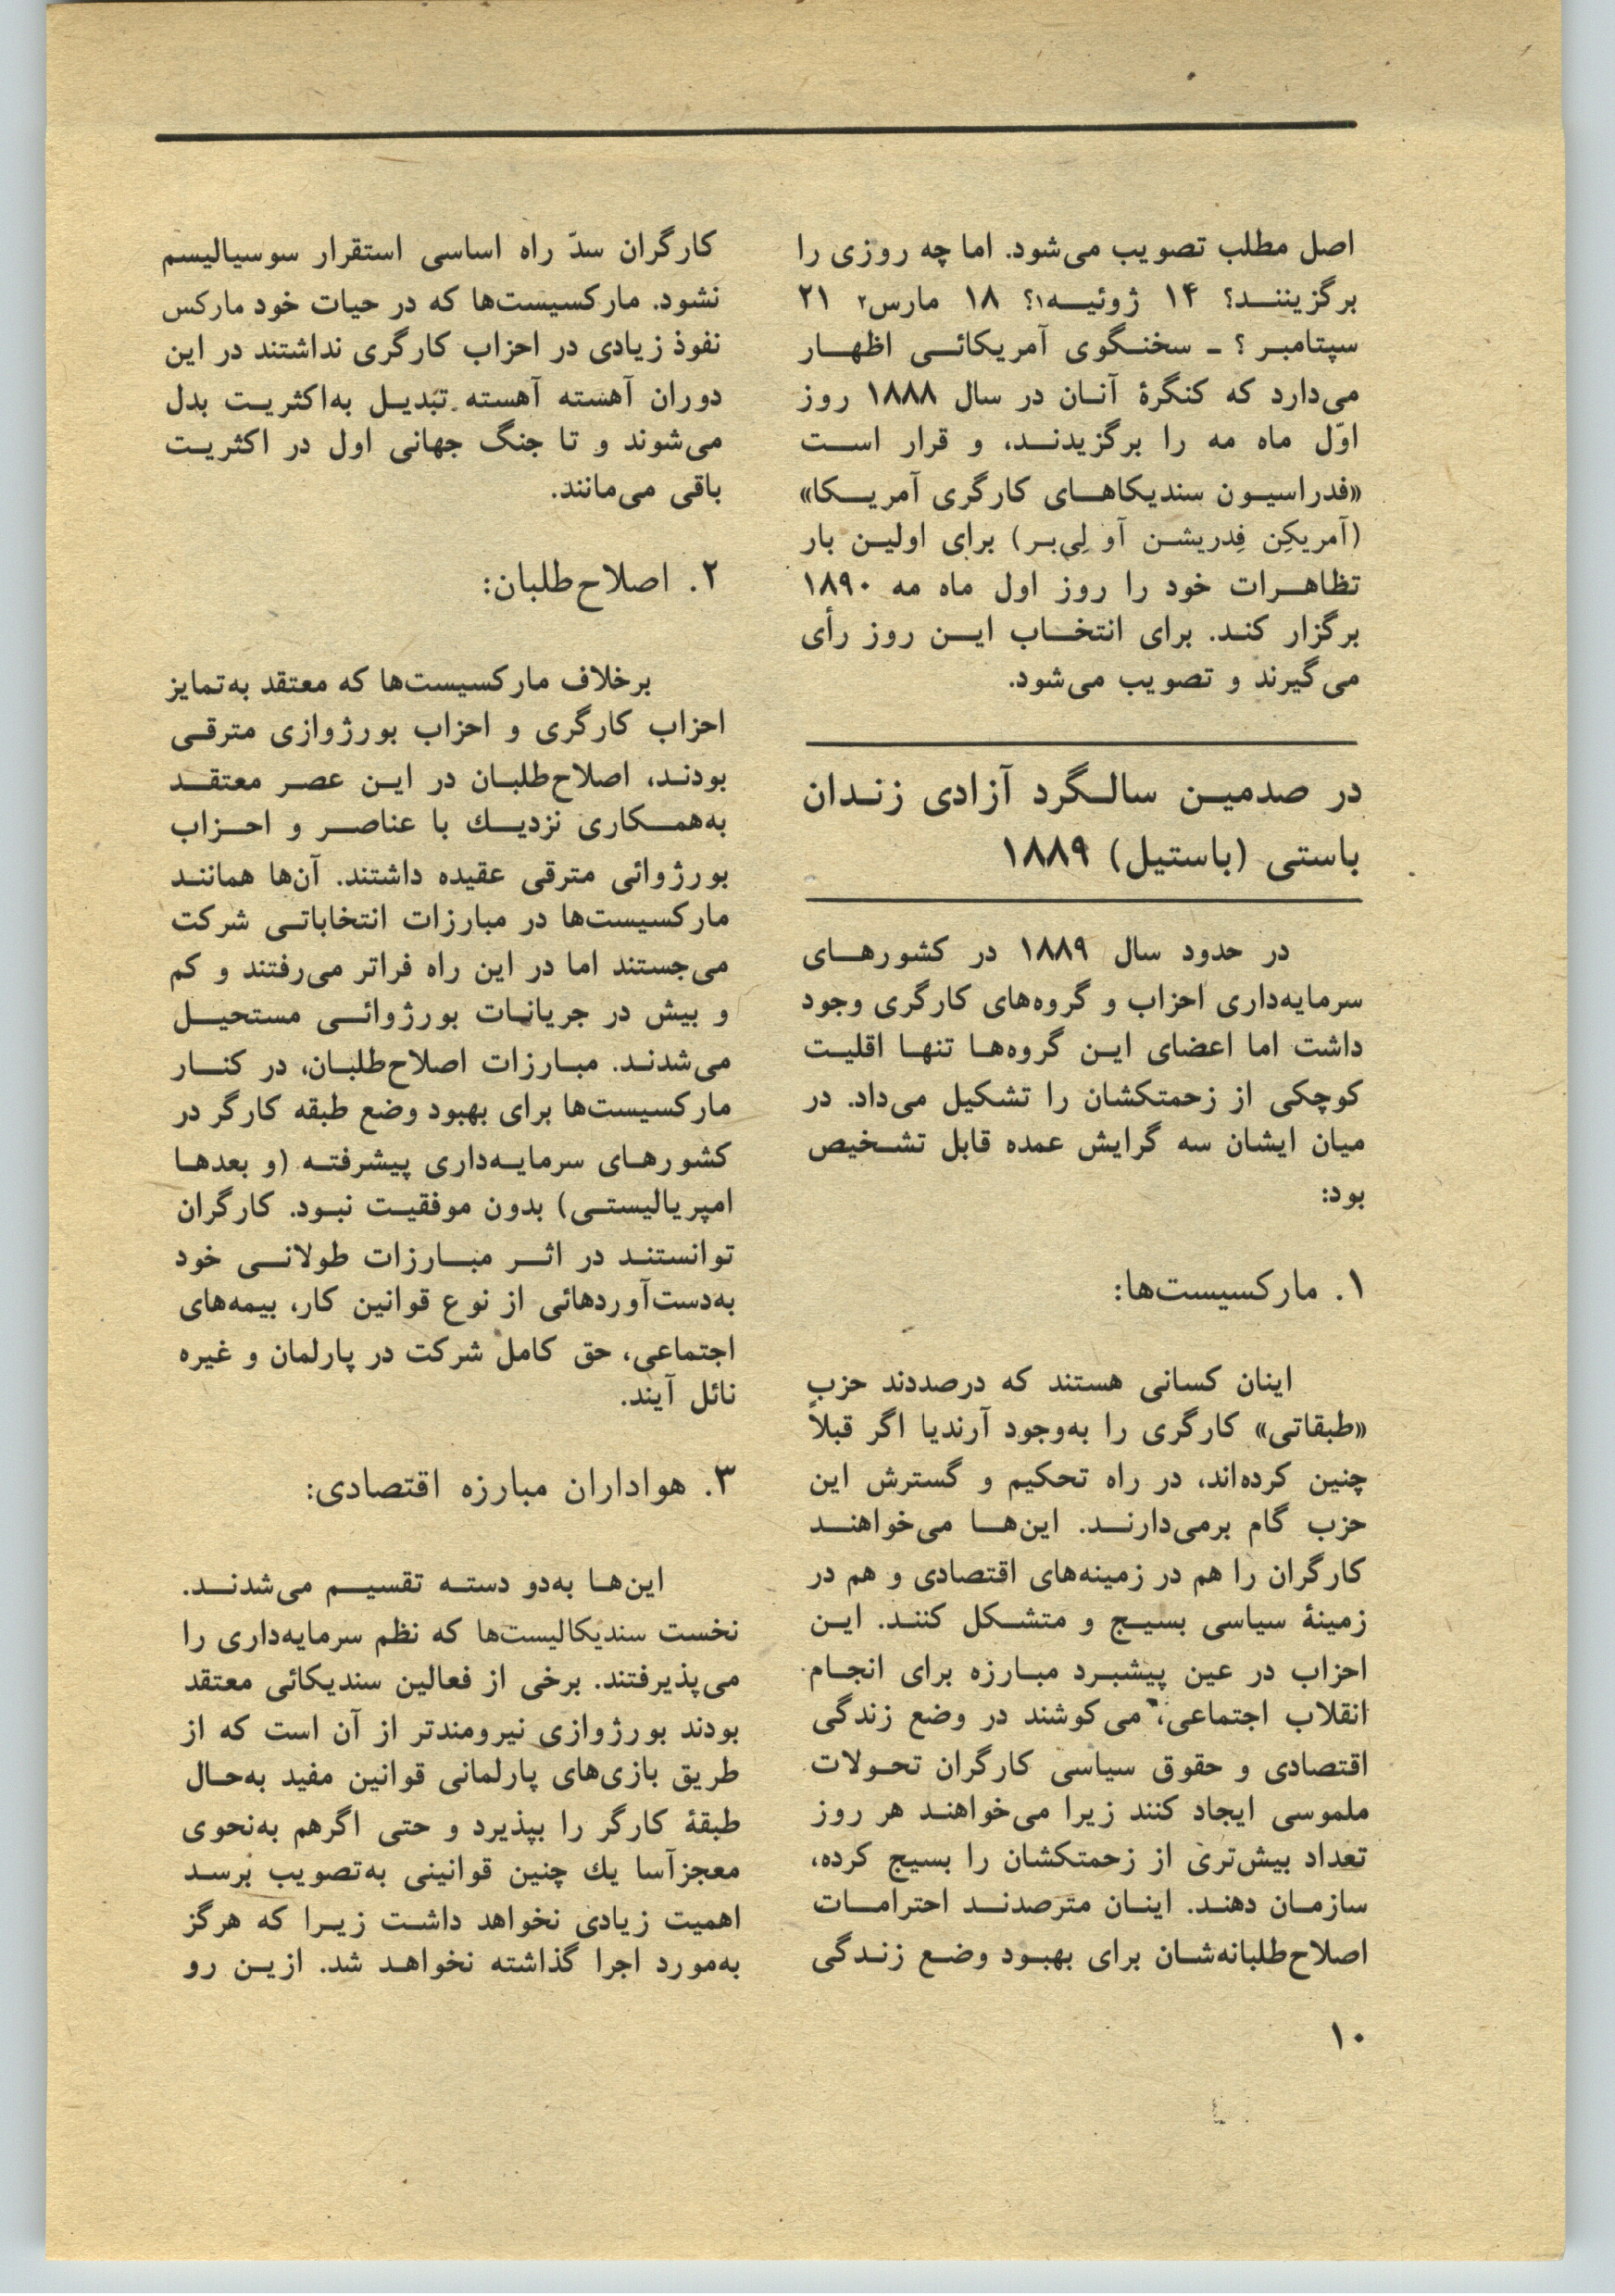 اصل مطلب تصویب می‌شود. اما چه روزی را
برگزیننـد؟ ۱۴ ژوئیـه۱؟ ۱۸ مارس۲ ۲۱
سپتامبر؟ ـ سخنگوی آمریکائی اظهار
می‌دارد که کنگرهٔ آنان در سال ۱۸۸۸ روز
اوّل ماه مه را برگزیدند، و قرار است
«فدراسیون سندیکاهای کارگری آمریکا»
(آمریکِن فِدریشن آو لِی‌بر) برای اولین بار
تظاهرات خود را روز اول ماه مه ۱۸۹۰
برگزار کند. برای انتخاب این روز رأی
می‌گیرند و تصویب می‌شود.
در صدمین سالگرد آزادی زندان
باستی (باستیل) ۱۸۸۹
در حدود سال ۱۸۸۹ در کشورهای
سرمایه‌داری احزاب و گروه‌های کارگری وجود
داشت اما اعضای این گروه‌ها تنها اقلیت
کوچکی از زحمتکشان را تشکیل می‌داد. در
میان ایشان سه گرایش عمده قابل تشخیص
بود:
۱. مارکسیست‌ها:
اینان کسانی هستند که درصددند حزب
«طبقاتی» کارگری را به‌وجود آرندیا اگر قبلاً
چنین کرده‌اند، در راه تحکیم و گسترش این
حزب گام برمی‌دارند. این‌ها می‌خواهند
کارگران را هم در زمینه‌های اقتصادی و هم در
زمینهٔ سیاسی بسیج و متشکل کنند. این
احزاب در عین پیشبرد مبارزه برای انجام
انقلاب اجتماعی، می‌کوشند در وضع زندگی
اقتصادی و حقوق سیاسی کارگران تحولات
ملموسی ایجاد کنند زیرا می‌خواهند هر روز
تعداد بیش‌تری از زحمتکشان را بسیج کرده،
سازمان دهند. اینان مترصدند احترامات
اصلاح‌طلبانه‌شان برای بهبود وضع زندگی
کارگران سدّ راه اساسی استقرار سوسیالیسم
نشود. مارکسیست‌ها که در حیات خود مارکس
نفوذ زیادی در احزاب کارگری نداشتند در این
دوران آهسته آهسته تبدیل به‌اکثریت بدل
می‌شوند و تا جنگ جهانی اول در اکثریت
باقی می‌مانند.
۲. اصلاح‌طلبان:
برخلاف مارکسیست‌ها که معتقد به‌تمایز
احزاب کارگری و احزاب بورژوازی مترقی
بودند، اصلاح‌طلبان در این عصر معتقد
به‌همکاری نزدیك با عناصر و احزاب
بورژوائی مترقی عقیده داشتند. آن‌ها همانند
مارکسیست‌ها در مبارزات انتخاباتی شرکت
می‌جستند اما در این راه فراتر می‌رفتند و کم
و بیش در جریانات بورژوائی مستحیل
می‌شدند. مبارزات اصلاح‌طلبان، در کنار
مارکسیست‌ها برای بهبود وضع طبقه کارگر در
کشورهای سرمایه‌داری پیشرفته (و بعدها
امپریالیستی) بدون موفقیت نبود. کارگران
توانستند در اثر مبارزات طولانی خود
به‌دست‌آوردهائی از نوع قوانین کار، بیمه‌های
اجتماعی، حق کامل شرکت در پارلمان و غیره
نائل آیند.
۳. هواداران مبارزه اقتصادی:
این‌ها به‌دو دسته تقسیم می‌شدند.
نخست سندیکالیست‌ها که نظم سرمایه‌داری را
می‌پذیرفتند. برخی از فعالین سندیکائی معتقد
بودند بورژوازی نیرومندتر از آن است که از
طریق بازی‌های پارلمانی قوانین مفید به‌حال
طبقهٔ کارگر را بپذیرد و حتی اگرهم به‌نحوی
معجزآسا یك چنین قوانینی به‌تصویب برسد
اهمیت زیادی نخواهد داشت زیرا که هرگز
به‌مورد اجرا گذاشته نخواهد شد. ازین رو
۱۰